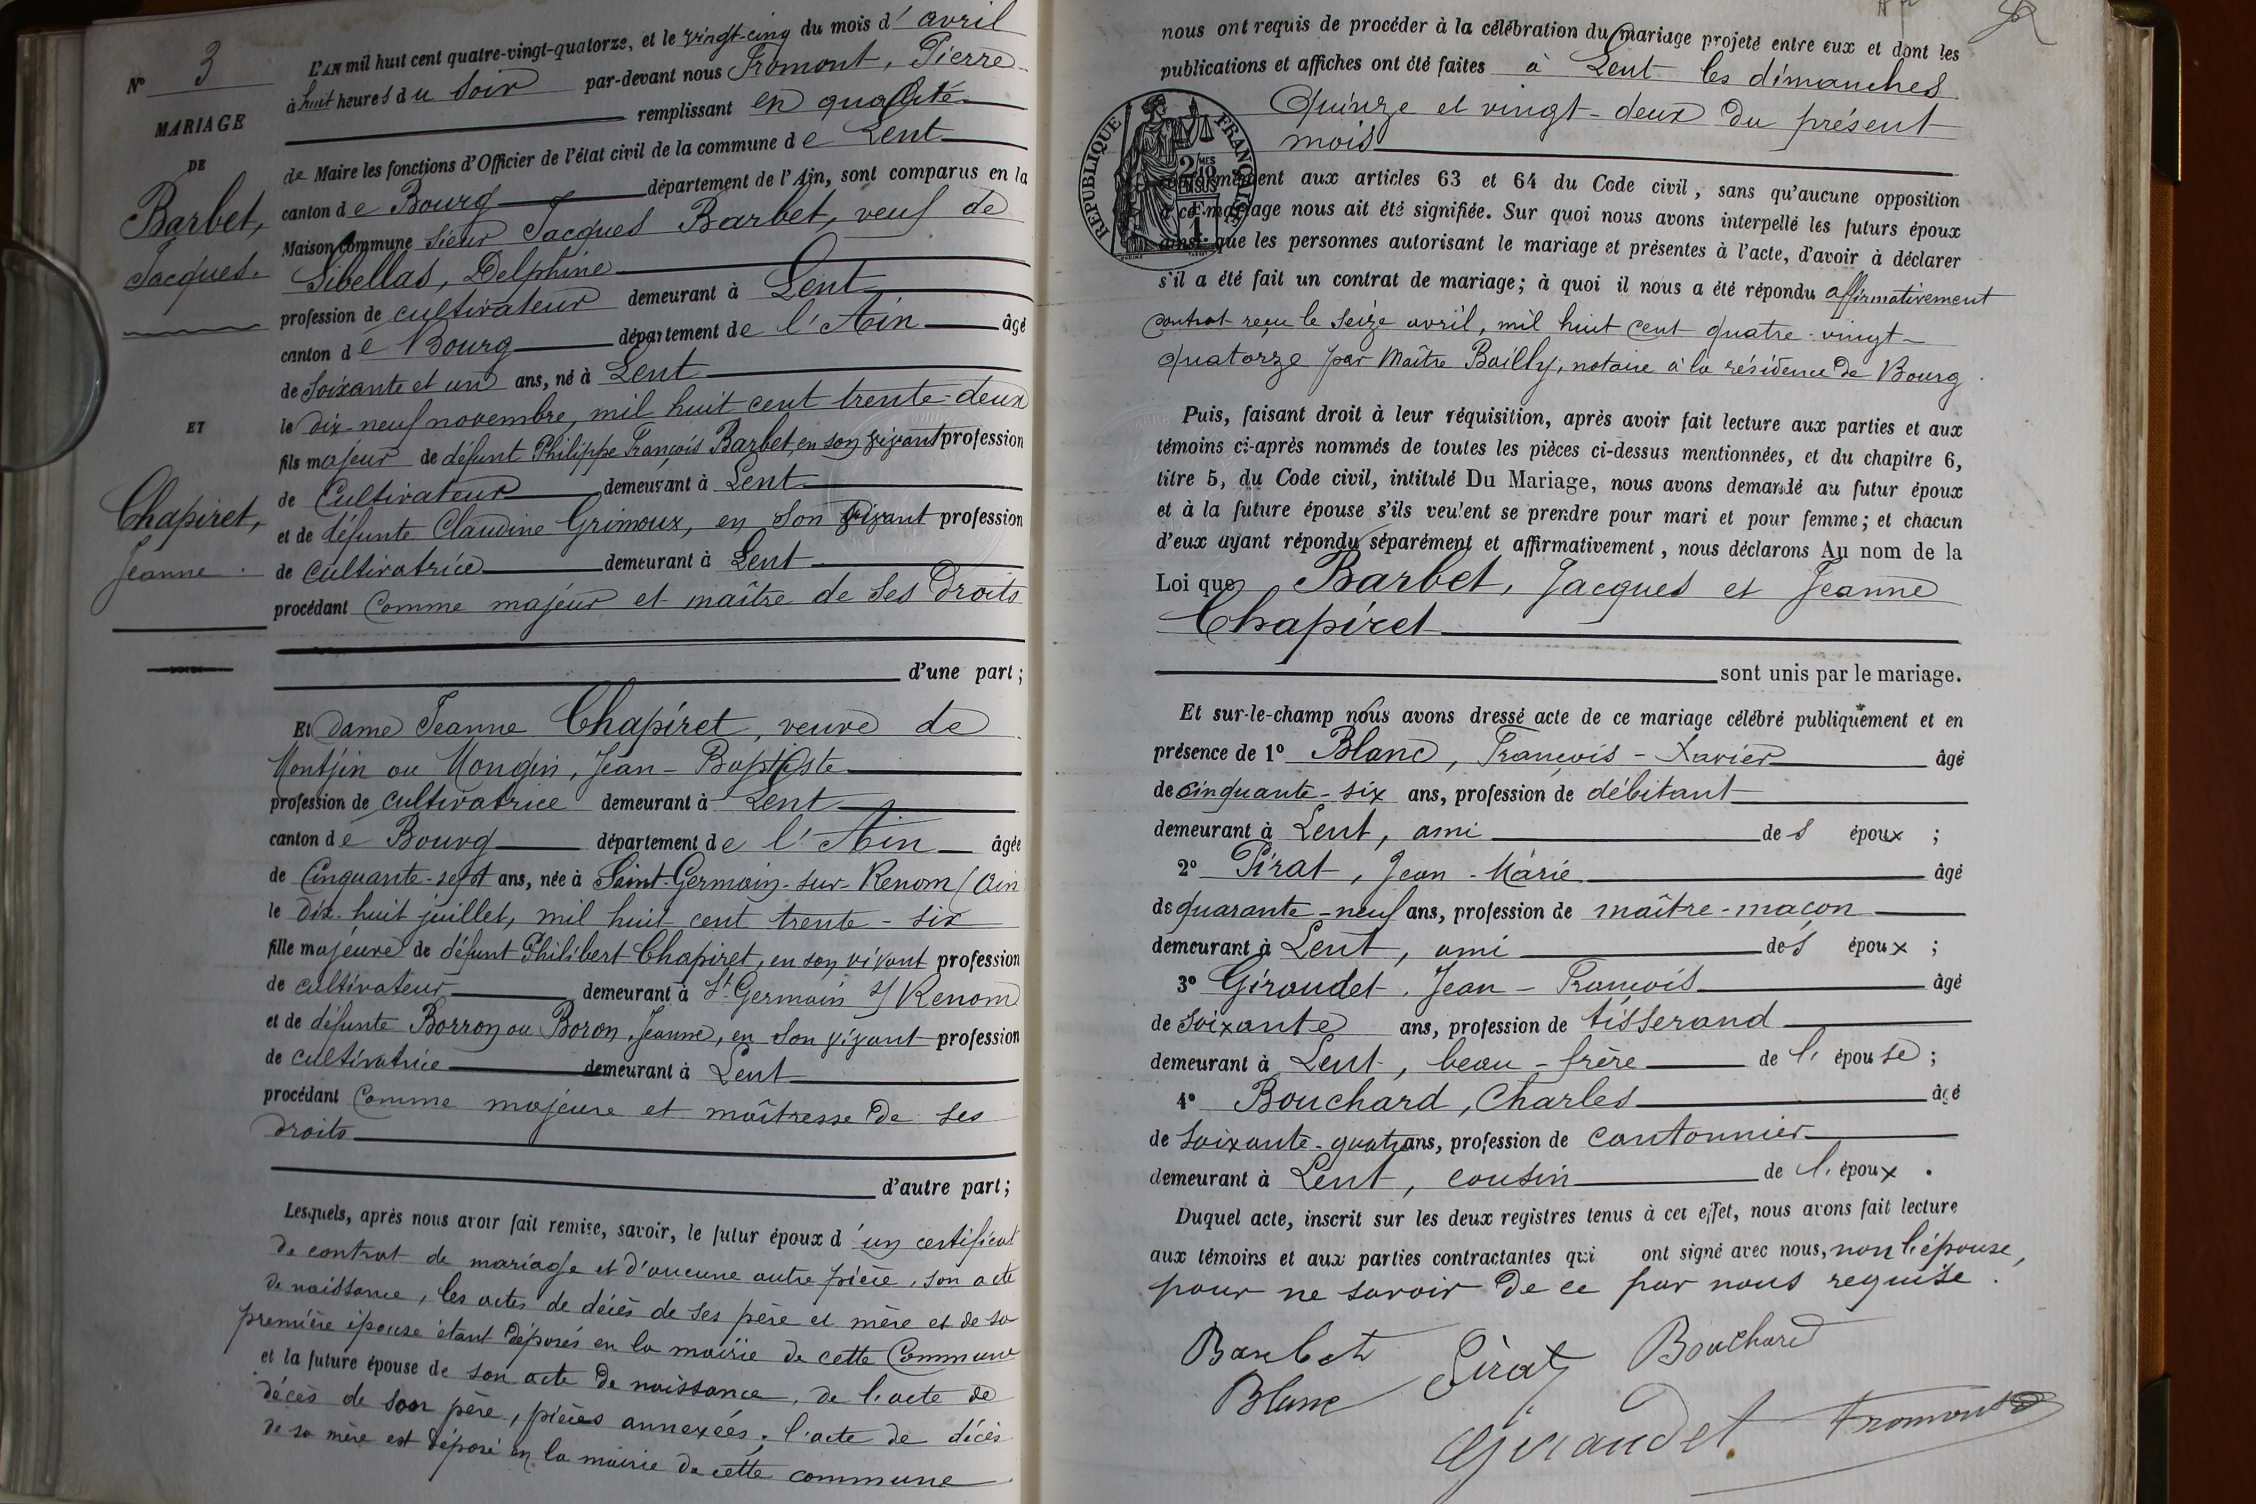 N° 3
MARIAGE
DE
Barbet,
Jacques.
ET
Chapiret,
Jeanne.
L'AN mil huit cent quatre-vingt-quatorze, et le vingt-cinq du mois d' avril
à huit heures du soir par-devant nous Fromont, Pierre
remplissant en qualité
de Maire les fonctions d'Officier de l'état civil de la commune de Lent
canton de Bourg département de l'Ain, sont comparus en la
Maison commune sieur Jacques Barbet, veuf de
Sibellas, Delphine
profession de cultivateur demeurant à Lent
canton de Bourg département de l'Ain âgé
de Soixante et un ans, né à Lent
le dix-neuf novembre, mil huit cent trente-deux
fils majeur de défunt Philippe François Barbet, en son vivant profession
de Cultivateur demeurant à Lent
et de défunte Claudine Grimoux, en son vivant profession
de cultivatrice demeurant à Lent
procédant comme majeur et maître de ses droits
d'une part;
Et dame Jeanne Chapiret, veuve de
Montjin ou Mongin, Jean-Baptiste
profession de cultivatrice demeurant à Lent
canton de Bourg département de l'Ain âgée
de Cinquante-sept ans, née à Saint-Germain-sur-Renom (Ain
le dix-huit juillet, mil huit cent trente-six
fille majeure de défunt Philibert Chapiret, en son vivant profession
de cultivateur demeurant à St Germain s/ Renom
et de défunte Borron ou Boron, Jeanne, en son vivant profession
de cultivatrice demeurant à Lent
procédant comme majeure et maîtresse de ses
droits
d'autre part;
Lesquels, après nous avoir fait remise, savoir, le futur époux d'un certificat
de contrat de mariage et d'aucune autre pièce, son acte
de naissance, les actes de décès de ses père et mère et de sa
première épouse étant déposés en la mairie de cette Commune
et la future épouse de son acte de naissance, de l'acte de
décès de son père, pièces annexées; l'acte de décès
de sa mère est déposé en la mairie de cette commune
nous ont requis de procéder à la célébration du mariage projeté entre eux et dont les
publications et affiches ont été faites à Lent les dimanches
Quinze et vingt-deux du présent
mois
REPUBLIQUE FRANÇAISE
conformément aux articles 63 et 64 du Code civil, sans qu'aucune opposition
à ce mariage nous ait été signifiée. Sur quoi nous avons interpellé les futurs époux
ainsi que les personnes autorisant le mariage et présentes à l'acte, d'avoir à déclarer
s'il a été fait un contrat de mariage; à quoi il nous a été répondu affirmativement
contrat reçu le seize avril, mil huit cent quatre-vingt-
quatorze par Maître Bailly, notaire à la résidence de Bourg
Puis, faisant droit à leur réquisition, après avoir fait lecture aux parties et aux
témoins ci-après nommés de toutes les pièces ci-dessus mentionnées, et du chapitre 6,
titre 5, du Code civil, intitulé Du Mariage, nous avons demandé au futur époux
et à la future épouse s'ils veulent se prendre pour mari et pour femme; et chacun
d'eux ayant répondu séparément et affirmativement, nous déclarons Au nom de la
Loi que Barbet, Jacques et Jeanne
Chapiret
sont unis par le mariage.
Et sur-le-champ nous avons dressé acte de ce mariage célébré publiquement et en
présence de 1° Blanc, François-Xavier âgé
de cinquante-six ans, profession de débitant
demeurant à Lent, ami des époux;
2° Pirat, Jean-Marie âgé
de quarante-neuf ans, profession de maître-maçon
demeurant à Lent, ami des époux;
3° Giraudet, Jean-François âgé
de soixante ans, profession de tisserand
demeurant à Lent, beau-frère de l'épouse;
4° Bouchard, Charles âgé
de soixante-quatre ans, profession de cantonnier
demeurant à Lent, cousin de l'époux.
Duquel acte, inscrit sur les deux registres tenus à cet effet, nous avons fait lecture
aux témoins et aux parties contractantes qui ont signé avec nous, non l'épouse,
pour ne savoir de ce par nous requise.
Barbet Pirat Bouchard
Blanc
Giraudet Fromont